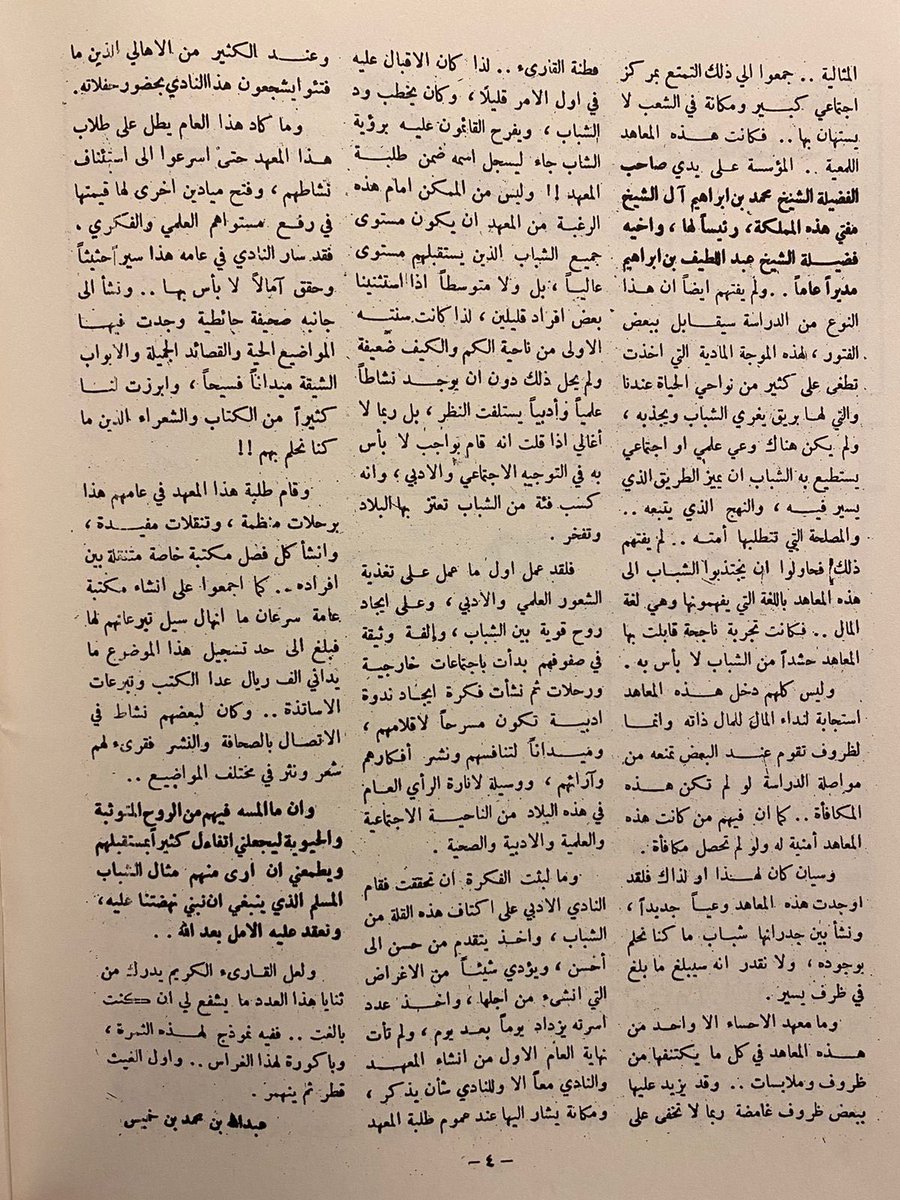 المثالية .. جمعوا الي ذلك التمتع بمركز
اجتماعي كبير ومكانة في الشعب لا
يستهان بها .. فكانت هذه المعاهد
اللمعية .. المؤسسة على يدي صاحب
الفضيلة الشيخ محمد بن ابراهيم آل الشيخ
مفتي هذه المملكة ، رئيساً لها ، واخيه
فضيلة الشيخ عبد اللطيف بن ابراهيم
مديراً عاماً .. ولم يفتهم ايضاً ان هذا
النوع من الدراسة سيقابل ببعض
الفتور ، لهذه الموجة المادية التي اخذت
تطغى على كثير من نواحي الحياة عندنا
والتي لها بريق يغري الشباب ويجذبه ،
ولم يكن هناك وعي علمي او اجتماعي
يستطيع به الشباب ان يميز الطريق الذي
يسير فيه ، والنهج الذي يتبعه ..
والمصلحة التي تتطلبها أمته .. لم يفتهم
ذلك ! فحاولوا ان يجتذبوا الشباب الى
هذه المعاهد باللغة التي يفهمونها وهي لغة
المال .. فكانت تجربة ناجحة قابلت بها
المعاهد حشداً من الشباب لا بأس به .
وليس كلهم دخل هذه المعاهد
استجابة لنداء المال للمال ذاته وانما
لظروف تقوم عند البعض تمنعه من
مواصلة الدراسة لو لم تكن هذه
المكافأة .. كما ان فيهم من كانت هذه
المعاهد أمنية له ولو لم تحصل مكافأة .
وسيان كان لهذا او لذاك فلقد
اوجدت هذه المعاهد وعياً جديداً ،
ونشأ بين جدرانها شباب ما كنا نحلم
بوجوده ، ولا نقدر انه سيبلغ ما بلغ
في ظرف يسير .
وما معهد الاحساء الا واحد من
هذه المعاهد في كل ما يكتنفها من
ظروف وملابسات .. وقد يزيد عليها
ببعض ظروف غامضة ربما لا تخفى على
فطنة القارىء .. لذا كان الاقبال عليه
في اول الامر قليلاً ، وكان يخطب ود
الشباب ، ويفرح القائمون عليه برؤية
الشاب جاء ليسجل اسمه ضمن طلبة
المعهد !! وليس من الممكن امام هذه
الرغبة من المعهد ان يكون مستوى
جميع الشباب الذين يستقبلهم مستوى
عالياً ، بل ولا متوسطاً اذا استثنينا
بعض افراد قليلين ، لذا كانت سنته
الاولى من ناحية الكم والكيف ضعيفة
ولم يحل ذلك دون ان يوجد نشاطاً
علمياً وأدبياً يستلفت النظر ، بل ربما لا
أغالي اذا قلت انه قام بواجب لا بأس
به في التوجيه الاجتماعي والادبي ، وانه
كسب فئة من الشباب تعتز بها البلاد
وتفخر .
فلقد عمل اول ما عمل على تغذية
الشعور العلمي والادبي ، وعلى ايجاد
روح قوية بين الشباب ، وإلفة وثيقة
في صفوفهم بدأت باجتماعات خارجية
ورحلات ثم نشأت فكرة ايجاد ندوة
ادبية تكون مسرحاً لاقلامهم ،
وميداناً لتنافسهم ونشر أفكارهم
وآرائهم ، ووسيلة لانارة الرأي العام
في هذه البلاد من الناحية الاجتماعية
والعلمية والادبية والصحية .
وما لبثت الفكرة أن تحققت فقام
النادي الادبي على اكتاف هذه القلة من
الشباب ، واخذ يتقدم من حسن الى
أحسن ، ويؤدي شيئاً من الاغراض
التي انشىء من اجلها ، واخذ عدد
اسرته يزداد يوماً بعد يوم ، ولم تأت
نهاية العام الاول من انشاء المعهد
والنادي معاً الا وللنادي شأن يذكر ،
ومكانة يشار اليها عند عموم طلبة المعهد
وعند الكثير من الاهالي الذين ما
فتئوا يشجعون هذا النادي بحضور حفلاته.
وما كاد هذا العام يطل على طلاب
هذا المعهد حتى اسرعوا الى استئناف
نشاطهم ، وفتح ميادين اخرى لها قيمتها
في رفع مستواهم العلمي والفكري .
فقد سار النادي في عامه هذا سيراً حثيثاً
وحقق آمالاً لا بأس بها .. ونشأ الى
جانبه صحيفة حائطية وجدت فيها
المواضيع الحية والقصائد الجميلة والابواب
الشيقة ميداناً فسيحاً ، وابرزت لنا
كثيراً من الكتاب والشعراء الذين ما
كنا نحلم بهم !!
وقام طلبة هذا المعهد في عامهم هذا
برحلات منظمة ، وتنقلات مفيدة ،
وانشأ كل فصل مكتبة خاصة متنقلة بين
افراده .. كما اجمعوا على انشاء مكتبة
عامة سرعان ما انهال سيل تبرعاتهم لها
فبلغ الى حد تسجيل هذا الموضوع ما
يداني الف ريال عدا الكتب وتبرعات
الاساتذة .. وكان لبعضهم نشاط في
الاتصال بالصحافة والنشر فقرىء لهم
شعر ونثر في مختلف المواضيع ..
وان ما المسه فيهم من الروح المتوثبة
والحيوية ليجعلني اتفاءل كثيراً بمستقبلهم
ويطمعني ان ارى منهم مثال الشباب
المسلم الذي ينبغي ان نبني نهضتنا عليه ،
ونعقد عليه الامل بعد الله ..
ولعل القارىء الكريم يدرك من
ثنايا هذا العدد ما يشفع لي ان كنت
بالغت .. ففيه نموذج لهذه الثمرة ،
وباكورة لهذا الغراس .. واول الغيث
قطر ثم ينهمر .
عبدالله بن محمد بن خميس
- ٤ -